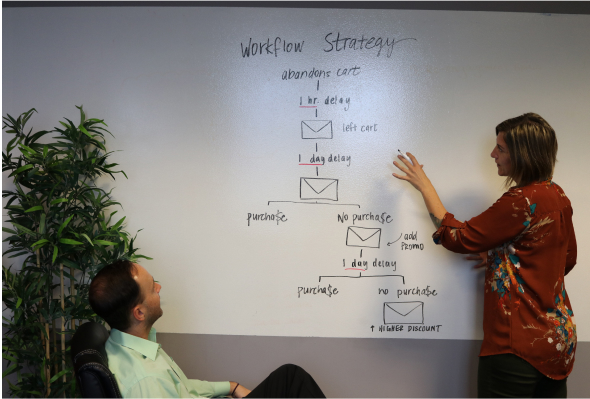 Workflow Strategy
abandons cart
1 hr. delay
left cart
1 day delay
purcha$e
No purcha$e
add
PROMO
1 day delay
purcha$e
no purcha$e
↑ HIGHER DISCOUNT